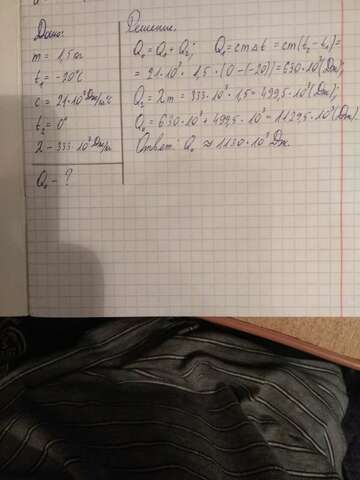 Дано:
m = 1,5 кг
t₁ = -20°C
c = 21·10³ Дж/кг°C
t₂ = 0°
λ - 333·10³ Дж/кг
Q₀ - ?
Решение.
Q₀ = Q₁ + Q₂; Q₁ = cmΔt = cm(t₂ - t₁) =
= 21·10³ · 1,5 · (0-(-20)) = 630·10³ (Дж);
Q₂ = λm = 333·10³ · 1,5 = 499,5·10³ (Дж);
Q₀ = 630·10³ + 499,5·10³ = 1129,5·10³ (Дж).
Ответ: Q₀ ≈ 1130·10³ Дж.